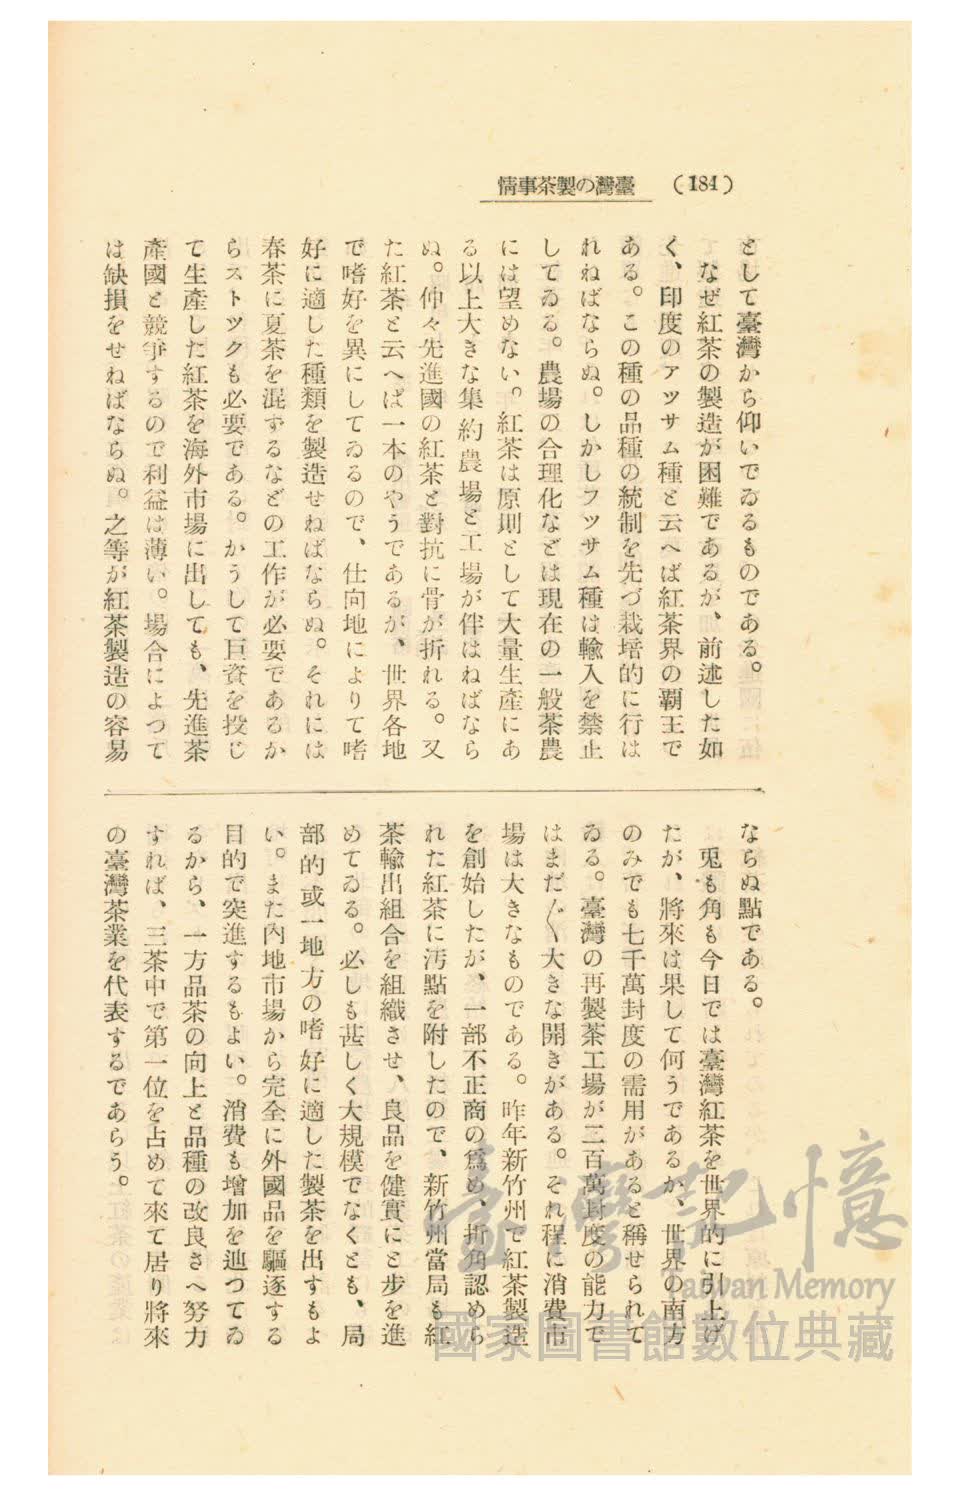 (184) 臺灣の製茶事情
として臺灣から仰いでゐるものである。
なぜ紅茶の製造が困難であるが、前述した如
く、印度のアツサム種と云へば紅茶界の覇王で
ある。この種の品種の統制を先づ栽培的に行は
れねばならぬ。しかしフツサム種は輸入を禁止
してゐる。農場の合理化などは現在の一般茶農
には望めない。紅茶は原則として大量生產にあ
る以上大きな集約農場と工場が伴はねばなら
ぬ。仲々先進國の紅茶と對抗に骨が折れる。又
た紅茶と云へば一本のやうであるが、世界各地
で嗜好を異にしてゐるので、仕向地によりて嗜
好に適した種類を製造せねばならぬ。それには
春茶に夏茶を混ずるなどの工作が必要であるか
らストツクも必要である。かうして巨資を投じ
て生產した紅茶を海外市場に出しても、先進茶
產國と競爭するので利益は薄い。場合によつて
は缺損をせねばならぬ。之等が紅茶製造の容易
ならぬ點である。
兎も角も今日では臺灣紅茶を世界的に引上げ
たが、將來は果して何うであるか、世界の南方
のみでも七千萬封度の需用があると稱せられて
ゐる。臺灣の再製茶工場が二百萬封度の能力で
はまだ〴〵大きな開きがある。それ程に消費市
場は大きなものである。昨年新竹州で紅茶製造
を創始したが、一部不正商の爲め、折角認めら
れた紅茶に汚點を附したので、新竹州當局も紅
茶輸出組合を組織させ、良品を健實にと步を進
めてゐる。必しも甚しく大規模でなくとも、局
部的或一地方の嗜好に適した製茶を出すもよ
い。また內地市場から完全に外國品を驅逐する
目的で突進するもよい。消費も增加を辿つてゐ
るから、一方品茶の向上と品種の改良さへ努力
すれば、三茶中で第一位を占めて來て居り將來
の臺灣茶業を代表するであらう。
臺灣記憶
Taiwan Memory
國家圖書館數位典藏